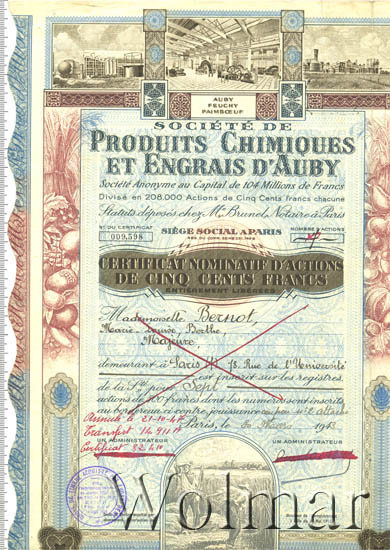 AUBY
FEUCHY
PAIMBŒUF
SOCIÉTÉ DE
PRODUITS CHIMIQUES
ET ENGRAIS D'AUBY
Société Anonyme au Capital de 104 Millions de Francs
Divisé en 208.000 Actions de Cinq Cents francs chacune
Statuts déposés chez Me Brunel, Notaire à Paris
SIÈGE SOCIAL A PARIS
N° DU CERTIFICAT
NOMBRE D'ACTIONS
009,598
CERTIFICAT NOMINATIF D'ACTIONS
DE CINQ CENTS FRANCS
ENTIÈREMENT LIBÉRÉES
Mademoiselle Bernot,
Marie Louise, Berthe
Majeure,
demeurant à Paris 78, Rue de l'Université
est inscrit sur les registres
de la Sté pour Sept
actions de 500 francs dont les numéros sont inscrits
au bordereau ci contre, jouissance
Annulé le 21-10-47
Transfert 14 911
Certificat 52 410
Paris, le
UN ADMINISTRATEUR
UN ADMINISTRATEUR
Wolmar